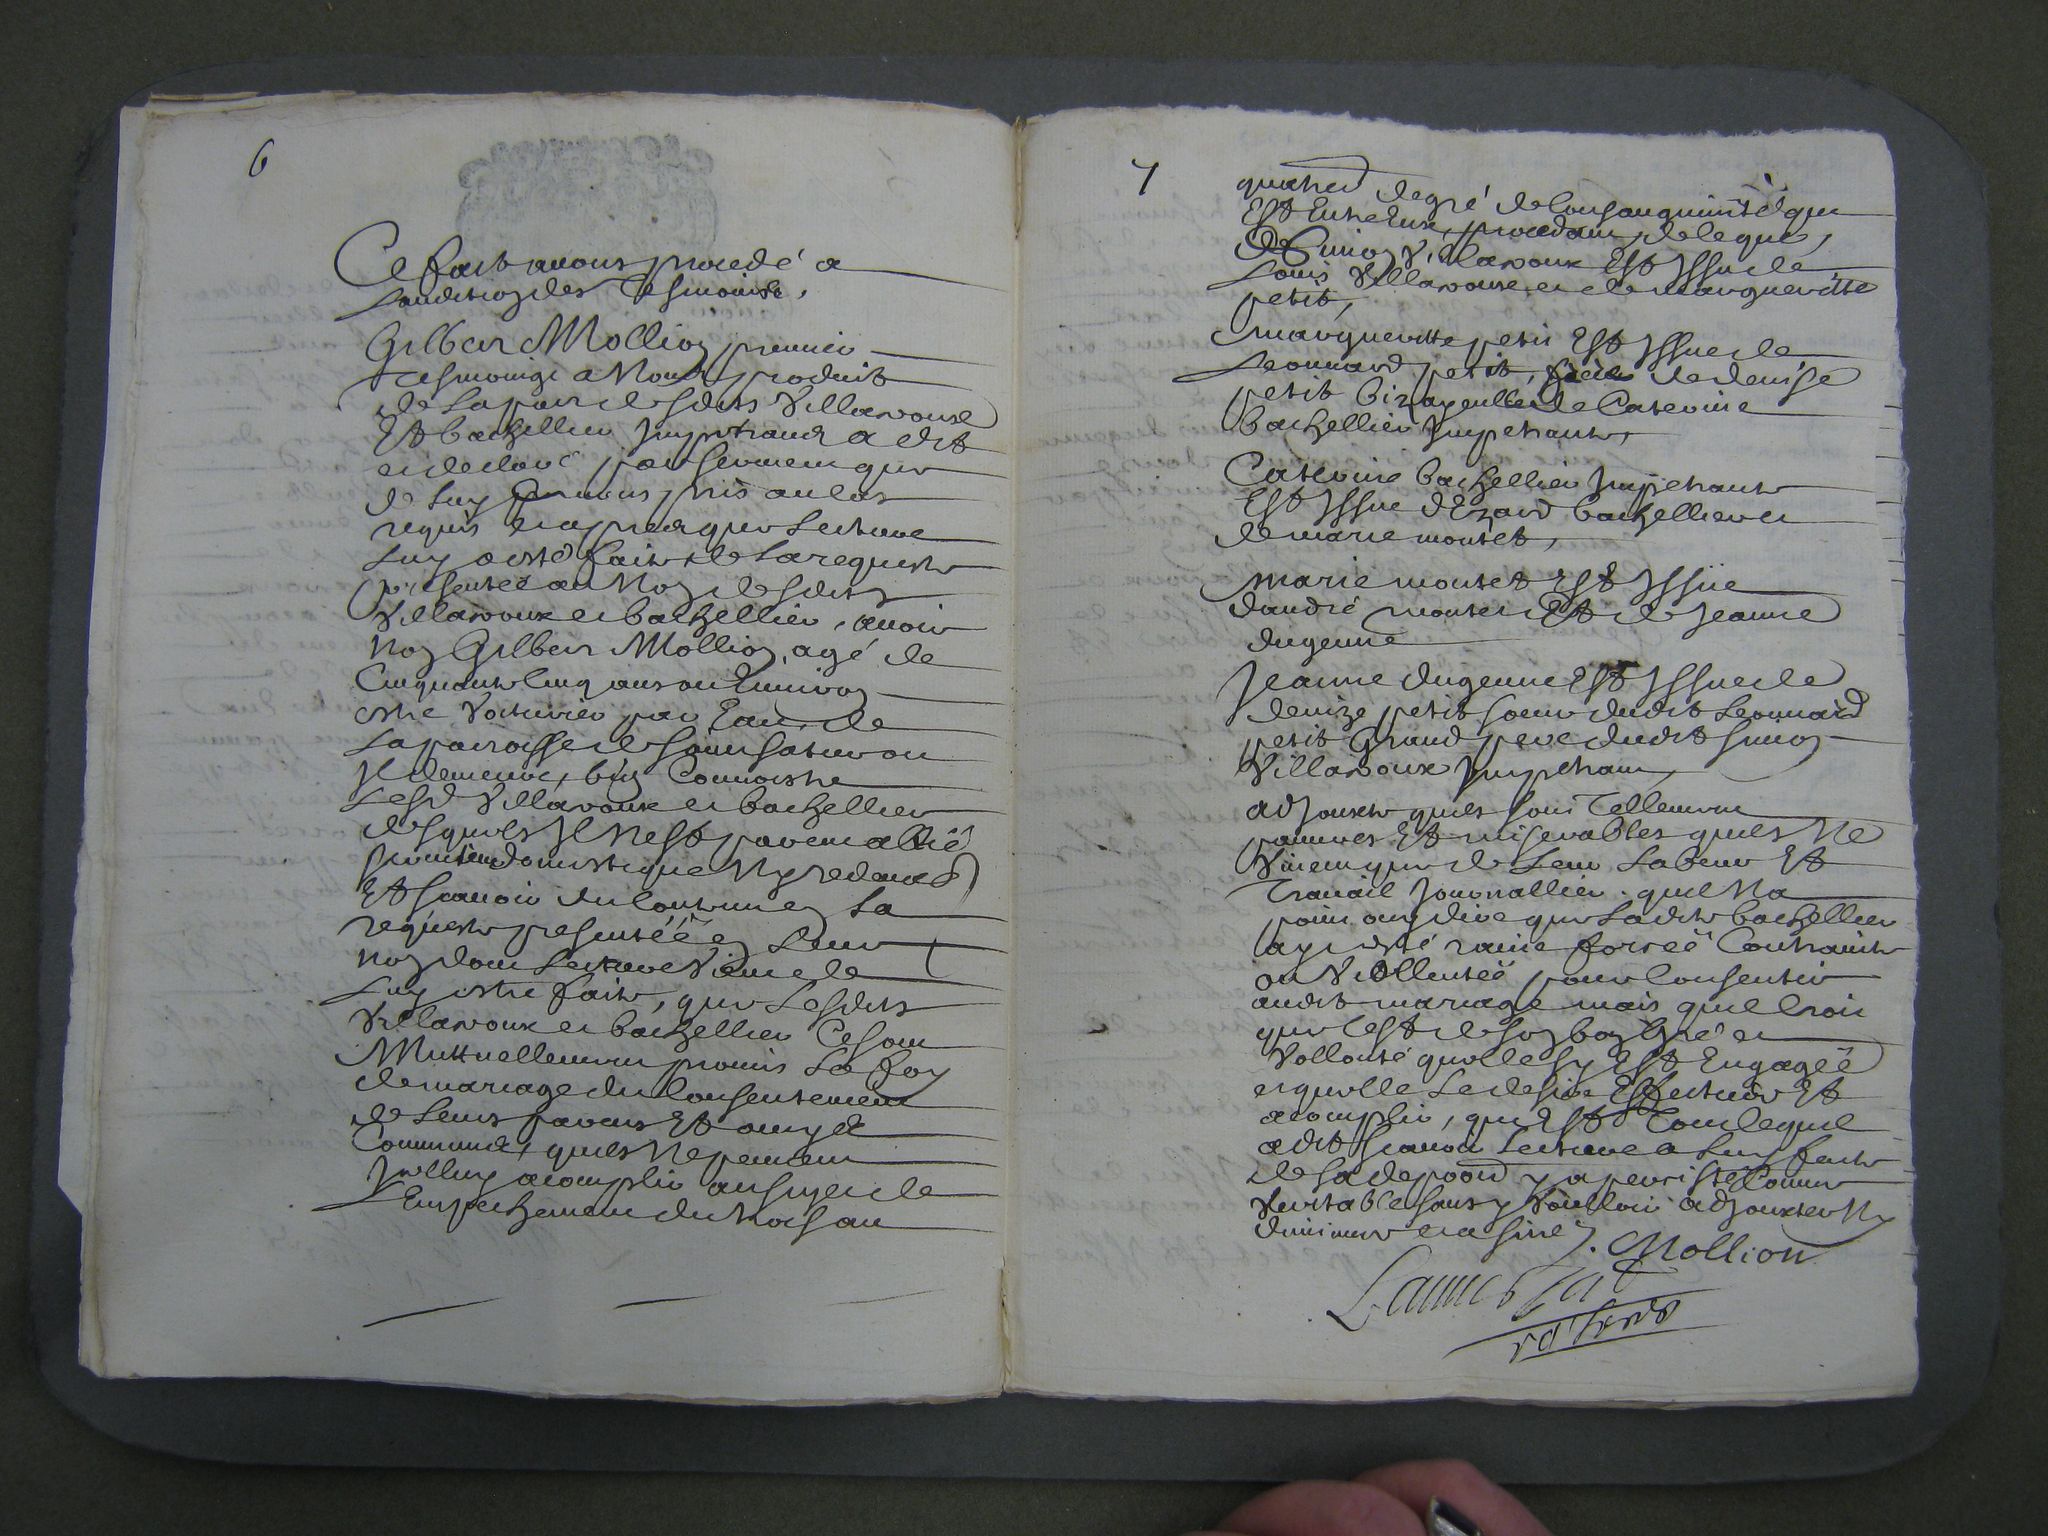 6
Ce fait avons procedé a
Laudition des Tesmoins.
Gilbert Mollion premier
Tesmoing a Nous produit
de La part desdits Villaroux
Et bachellier Impetrants a dit
et declaré par serment que
de Luy avons pris au cas
requis et apres que Lecture
Luy a esté faite de La requeste
presentée au Nom desdits
Villaroux et bachellier, avoir
Nom Gilbert Mollion, agé de
Cinquante cinq ans ou Environ
estre Voiturier par Eau, de
La parroisse de
Il demeure, bien Connoistre
Lesd Villaroux et bachellier
desquels Il N'est parent allié
serviteur domestique Ny redevable
Et scavoir du contenu en La
requeste presentée en Leur
Nom dont Lecture Vient de
Luy estre faite, que Lesdits
Villaroux et bachellier Ce sont
Mutuellement promis La foy
de mariage du consentement
de Leurs parens Et amys
Communs, quils Ne peuvent
accomplir au sujet de
L'Empechement du trois au
7
quatrie degré de consanguinité qui
Est Entre Eux, procedant, de ce que,
Simon Villaroux Est Issu de
Louis Villaroux et de margueritte
petit,
margueritte petit Est Issue de
Leonnard petit, frère de denise
petit bizayeulle de Caterine
bachellier Impetrante,
Caterine bachellier Impetrante
Est Issue d'Ezard bachellier et
de marie montet,
marie montet Est Issüe
dandré montet Et de Jeanne
dugenne
Jeanne dugenne Est Issue de
denize petit soeur dudit Leonnard
petit Grand pere dudit simon
Villaroux Impetrant,
adjouste quils sont Tellement
pauvres Et miserables quils Ne
Vivent que de Leur Labeur Et
Travail Journallier. quil Na
point ouy dire que Ladite bachellier
ayt esté ravie forcée Contrainte
ou Viollentée pour consentir
audit mariage mais quil croit
que cest de son bon Gré et
Vollonté quelle sy Est Engagée
et quelle Le desire Effectuer Et
accomplir, qui Est Tout ce quil
a dit scavoir Lecture a Luy faite
de sa depoon y a percisté Comme
Veritable sans y Voulloir adjouxter Ny
diminuer et a siné. Mollion